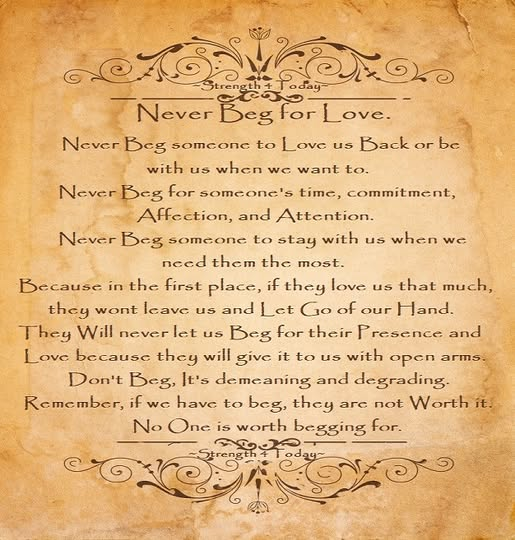 ~Strength 4 Today~
Never Beg for Love.
Never Beg someone to Love us Back or be
with us when we want to.
Never Beg for someone's time, commitment,
Affection, and Attention.
Never Beg someone to stay with us when we
need them the most.
Because in the first place, if they love us that much,
they wont leave us and Let Go of our Hand.
They Will never let us Beg for their Presence and
Love because they will give it to us with open arms.
Don't Beg, It's demeaning and degrading.
Remember, if we have to beg, they are not Worth it.
No One is worth begging for.
~Strength 4 Today~